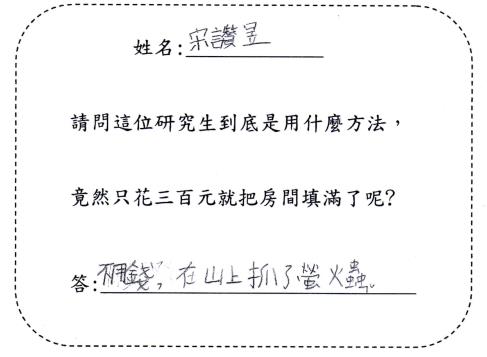 姓名:宋讚昱
請問這位研究生到底是用什麼方法，
竟然只花三百元就把房間填滿了呢?
答:不用錢，在山上抓了螢火蟲。